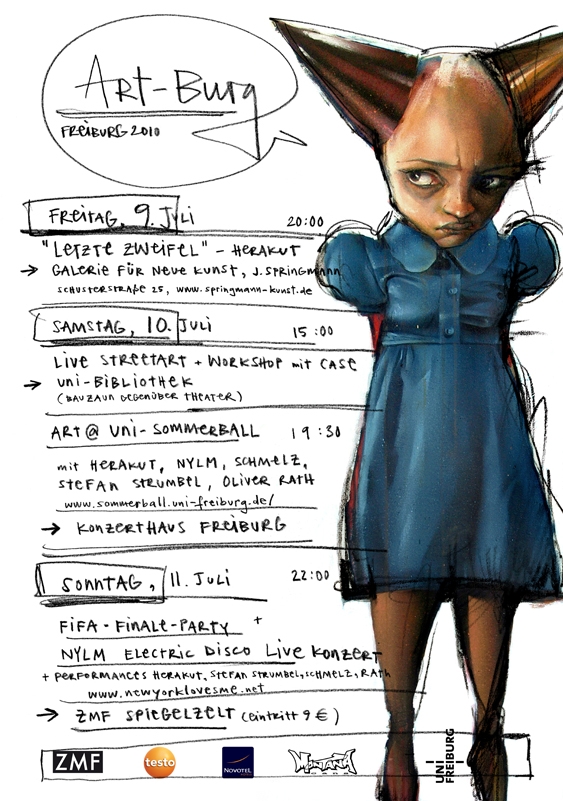 ART-BURG
FREIBURG 2010
FREITAG, 9. JULI 20:00
"LETZTE ZWEIFEL" - HERAKUT
→ GALERIE FÜR NEUE KUNST, J. SPRINGMANN
SCHUSTERSTRAßE 25, www.springmann-kunst.de
SAMSTAG, 10. JULI 15:00
LIVE STREETART + WORKSHOP mit CASE
→ UNI-BIBLIOTHEK
(BAUZAUN GEGENÜBER THEATER)
ART@UNI-SOMMERBALL 19:30
mit HERAKUT, NYLM, SCHMELZ,
STEFAN STRUMBEL, OLIVER RATH
www.sommerball.uni-freiburg.de/
→ KONZERTHAUS FREIBURG
SONNTAG, 11. JULI 22:00
FIFA-FINALE-PARTY +
NYLM ELECTRIC DISCO LIVE KONZERT
+ PERFORMANCES HERAKUT, STEFAN STRUMBEL, SCHMELZ, RATH
www.newyorklovesme.net
→ ZMF SPIEGELZELT (eintritt 9 €)
ZMF testo NOVOTEL MONTANA UNI FREIBURG